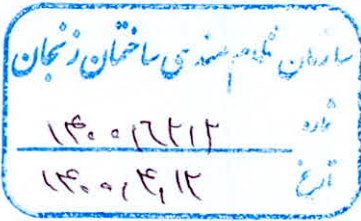 سازمان نظام مهندسی ساختمان زنجان
وارده ۱۴۰۰۱۶۲۱۲
تاریخ ۱۴۰۰,۴,۱۲